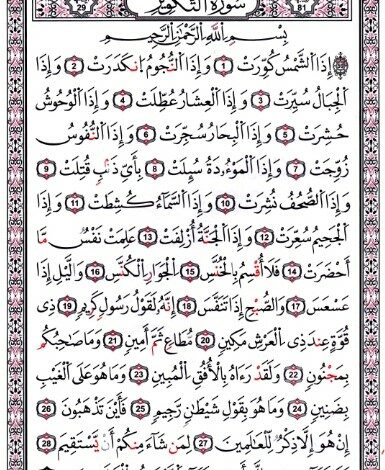 سُورَةُ التَّكْوِيرِ
بِسْمِ اللَّهِ الرَّحْمَٰنِ الرَّحِيمِ
إِذَا الشَّمْسُ كُوِّرَتْ 1 وَإِذَا النُّجُومُ انكَدَرَتْ 2 وَإِذَا
الْجِبَالُ سُيِّرَتْ 3 وَإِذَا الْعِشَارُ عُطِّلَتْ 4 وَإِذَا الْوُحُوشُ
حُشِرَتْ 5 وَإِذَا الْبِحَارُ سُجِّرَتْ 6 وَإِذَا النُّفُوسُ
زُوِّجَتْ 7 وَإِذَا الْمَوْءُۥدَةُ سُئِلَتْ 8 بِأَيِّ ذَنۢبٍ قُتِلَتْ 9
وَإِذَا الصُّحُفُ نُشِرَتْ 10 وَإِذَا السَّمَآءُ كُشِطَتْ 11 وَإِذَا
الْجَحِيمُ سُعِّرَتْ 12 وَإِذَا الْجَنَّةُ أُزْلِفَتْ 13 عَلِمَتْ نَفْسٌ مَّا
أَحْضَرَتْ 14 فَلَآ أُقْسِمُ بِالْخُنَّسِ 15 الْجَوَارِ الْكُنَّسِ 16 وَاللَّيْلِ إِذَا
عَسْعَسَ 17 وَالصُّبْحِ إِذَا تَنَفَّسَ 18 إِنَّهُۥ لَقَوْلُ رَسُولٍ كَرِيمٍ 19 ذِي
قُوَّةٍ عِندَ ذِي الْعَرْشِ مَكِينٍ 20 مُّطَاعٍ ثَمَّ أَمِينٍ 21 وَمَا صَاحِبُكُم
بِمَجْنُونٍ 22 وَلَقَدْ رَءَاهُ بِالْأُفُقِ الْمُبِينِ 23 وَمَا هُوَ عَلَى الْغَيْبِ
بِضَنِينٍ 24 وَمَا هُوَ بِقَوْلِ شَيْطَٰنٍ رَّجِيمٍ 25 فَأَيْنَ تَذْهَبُونَ 26
إِنْ هُوَ إِلَّا ذِكْرٌ لِّلْعَٰلَمِينَ 27 لِمَن شَآءَ مِنكُمْ أَن يَسْتَقِيمَ 28